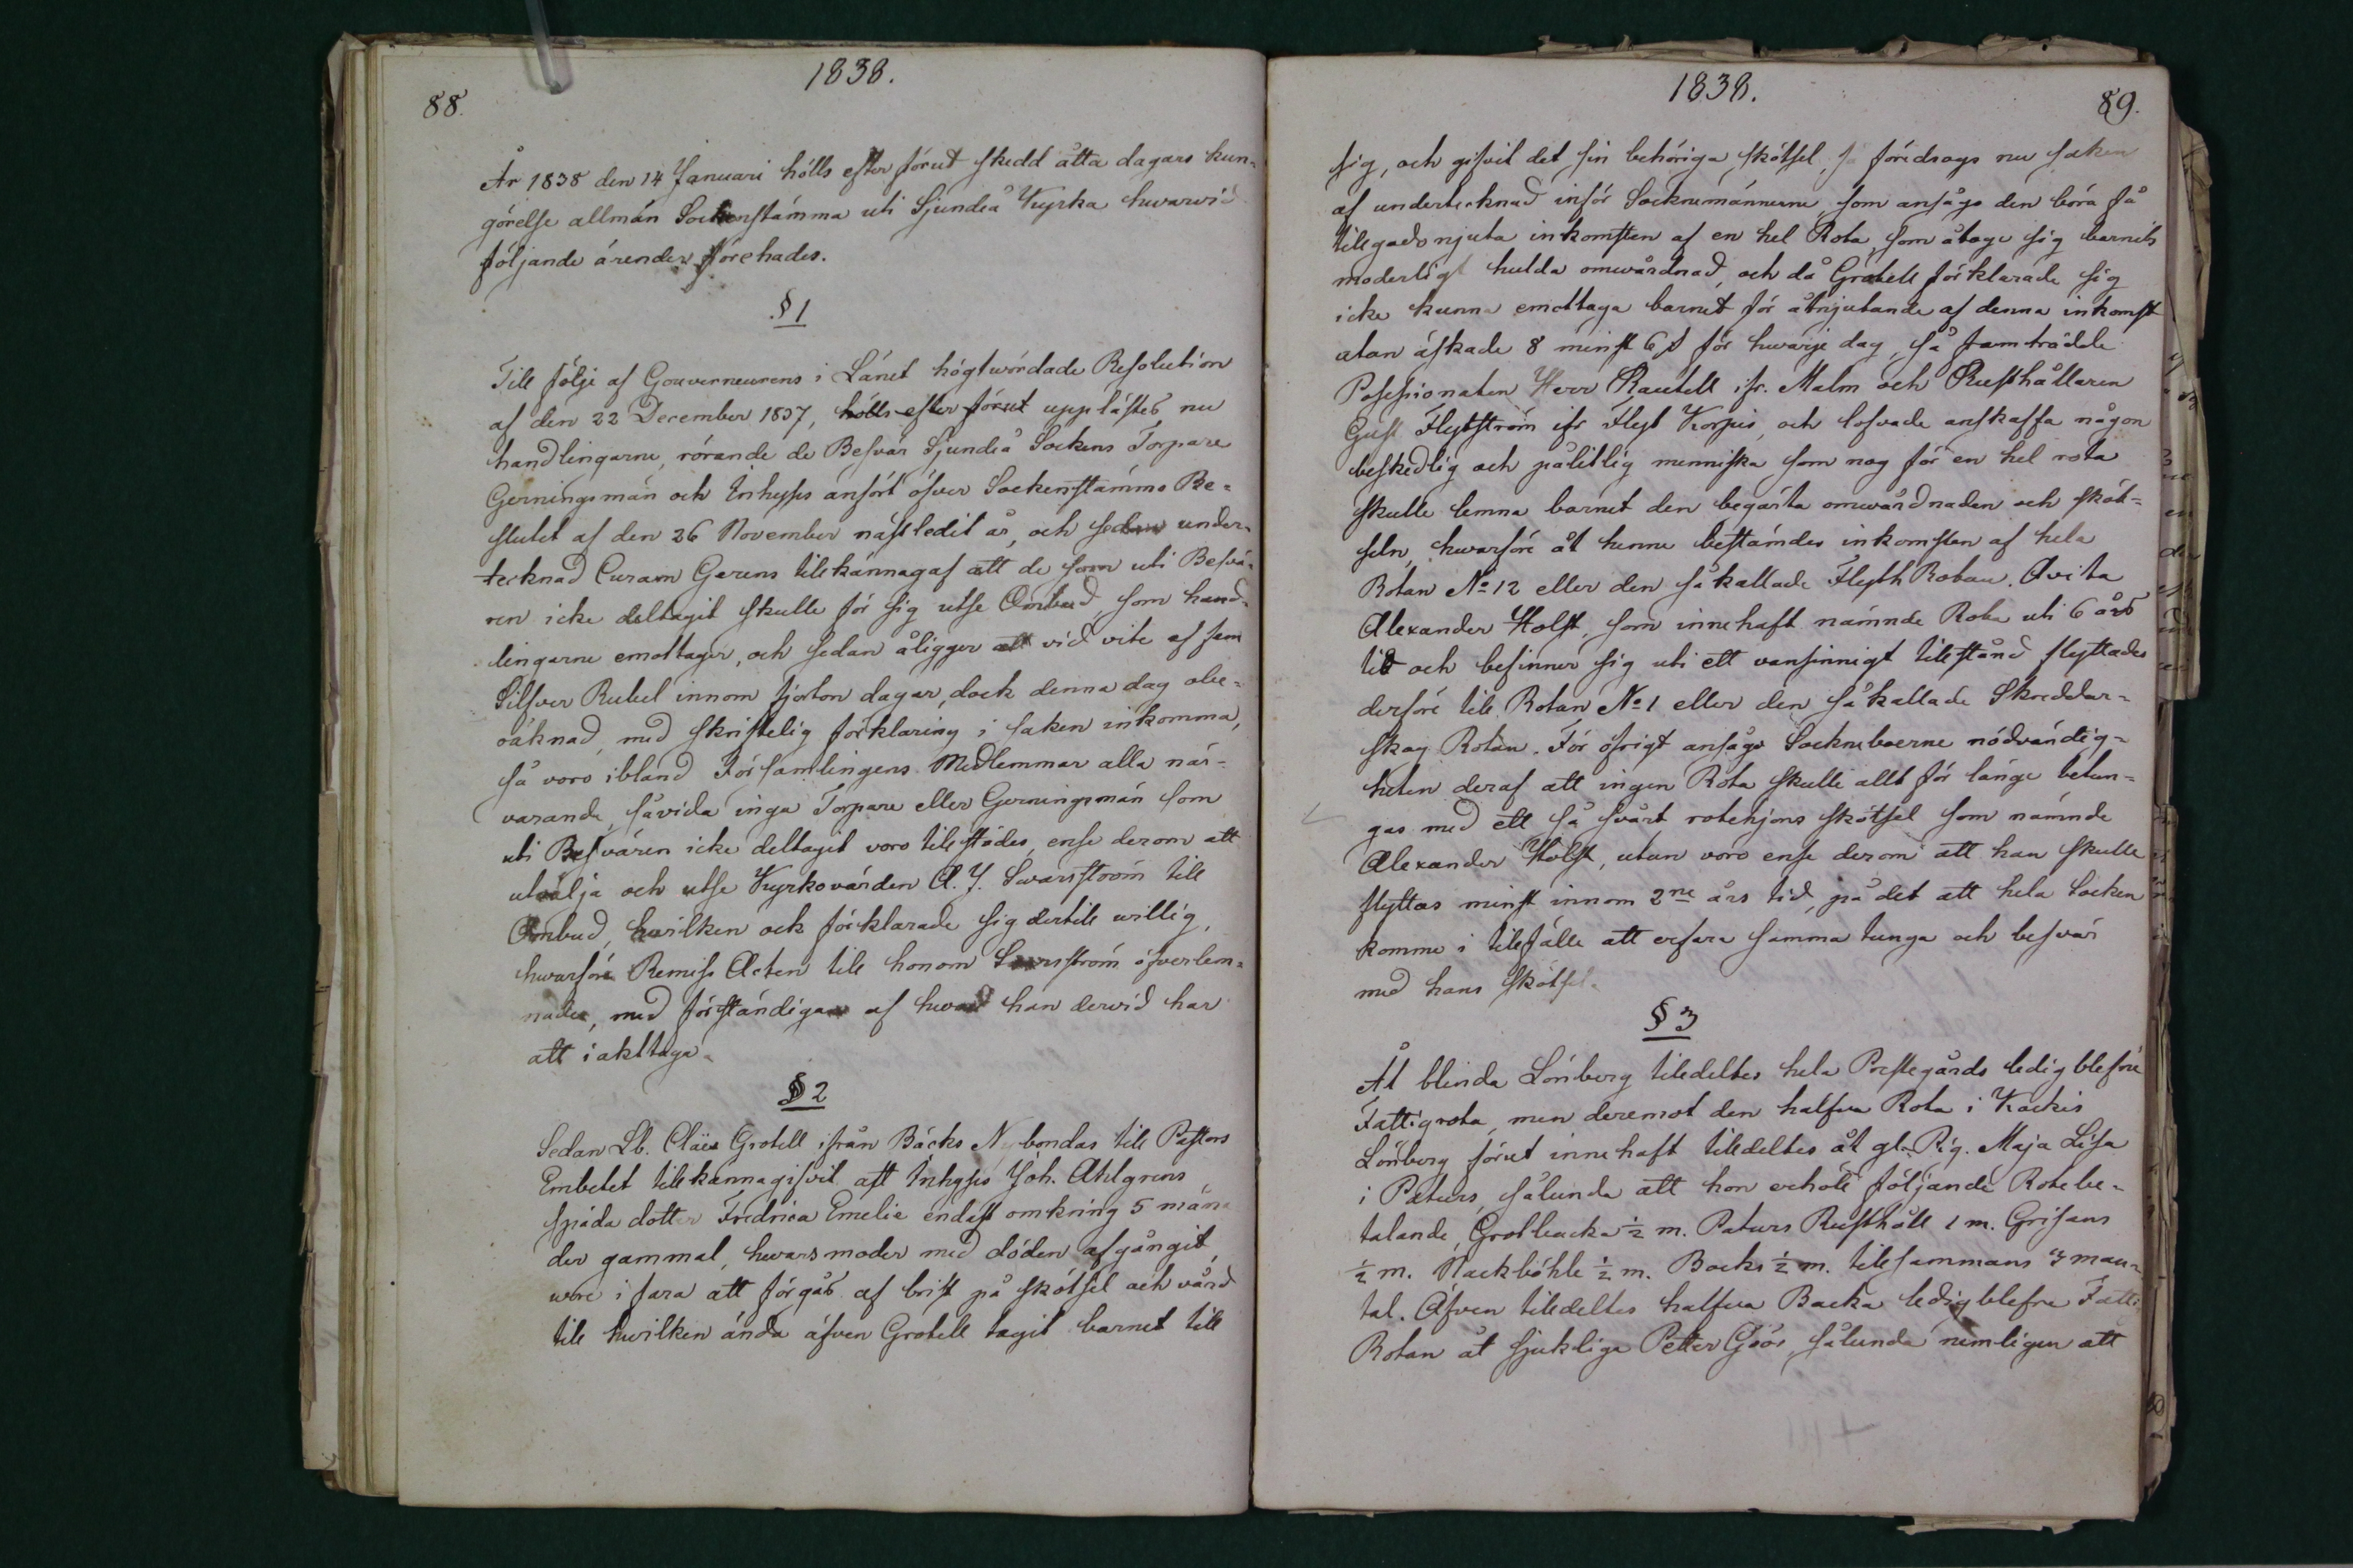 1838.
88.
År 1838 den 14 Januari hölls efter förut skedd åtta dagars kun-
görelse allmän Sockenstämma uti Sjundeå Kyrka hwarvid
följande ärender förehades.
§ 1
Till följe af Gouverneurens i Länet högtwördade Resolution
af den 22 December 1837, hölls efter förut upplästes nu
handlingarne, rörande de Besvär Sjundeå Sockens Torpare
Gerningsmän och Inhyses anfört öfver Sockenstämmo Be-
slutet af den 26 November nästledit år, och sedan under-
tecknad Curam Gerens tilkännagaf att de som uti Besvä-
ren icke deltagit skulle för sig utse Ombud, som hand-
lingarne emottager, och sedan åligger att vid vite af fem
Silfver Rubel innom fjorton dagar, dock denna dag obe-
räknad, med skriftelig förklaring i saken inkomma,
så voro ibland Församlingens Medlemmar alla när-
varande, såvida inga Torpare eller Gerningsmän som
uti Besvären icke deltagit voro tilstädes, ense derom att
utvälja och utse Kyrkovärden A. J. Swarström till
Ombud, hwilken ock förklarade sig dertill willig,
hwarföre Remiss Acten till honom Swarström öfverlem-
nades, med förständigan af hwad han dervid har
att iakttaga.
§ 2
Sedan Lb. Claës Grotell ifrån Bäcks Nybondas till Pastors
Embetet tilkännagifvit, att Inhyses Joh. Ahlgrens
späda dotter Fredrica Emelie endast omkring 5 måna
der gammal, hwars moder med döden afgångit,
wore i fara att förgås af brist på skötsel och vård
till hwilken ända äfven Grotell tagit barnet till
1838.
89.
sig, och gifvit det sin behöriga skötsel, så föredrogs nu saken
af undertecknad inför Socknemännerne, som ansågo den böra få
tilgodonjuta inkomsten af en hel Rota, som åtoge sig barnets
moderligt hulda omvårdnad, och då Grotell förklarade sig
icke kunna emottaga barnet för åtnjutande af denna inkomst
utan äskade 8 minst 6 s för hwarje dag, så framträdde
Possessionaten Herr Rautell ifr. Malm och Rusthållaren
Gust. Flytström ifr Flyt Korpis, och lofvade anskaffa någon
beskedlig och pålitlig menniska som nog för en hel rota
skulle lemna barnet den begärta omwårdnaden och sköt-
seln, hwarföre åt henne bestämdes inkomsten af hela
Rotan No 12 eller den så kallade Flyth Rotan. Avita
Alexander Holst, som innehaft nämnde Rota uti 6 års
tid och befinner sig uti ett vansinnigt tilstånd flyttades
derföre till Rotan No 1 eller den så kallade Skreddar-
skog Rotan. För öfrigt ansågo Sockneboerne nödvändig-
heten deraf att ingen Rota skulle allt för länge betun-
gas med ett så svårt rotehjons skötsel som nämnde
Alexander Holst, utan voro ense derom att han skulle
flyttas minst innom 2ne års tid, på det att hela Socken
komme i tilfälle att erfara samma tunga och besvär
med hans skötsel.
§ 3
Åt blinda Lönberg tildeltes hela Prestegårds ledig blefne
Fattigrota, men deremot den halfva Rota i Kockis
Lönberg förut innehaft tildeltes åt gl. Pig. Maja Lisa
i Paturs, sålunda att hon erhölt följande Rotebe-
talande, Grotbacka ½ m. Paturs Rusthåll 1 m. Grisans
½ m. Nackböhle ½ m. Bocks ½ m. tillsammans 3 man-
tal. Äfven tildeltes halfva Backa ledigblefne Fatti
Rotan åt sjukliga Petter Göös, sålunda nemligen att